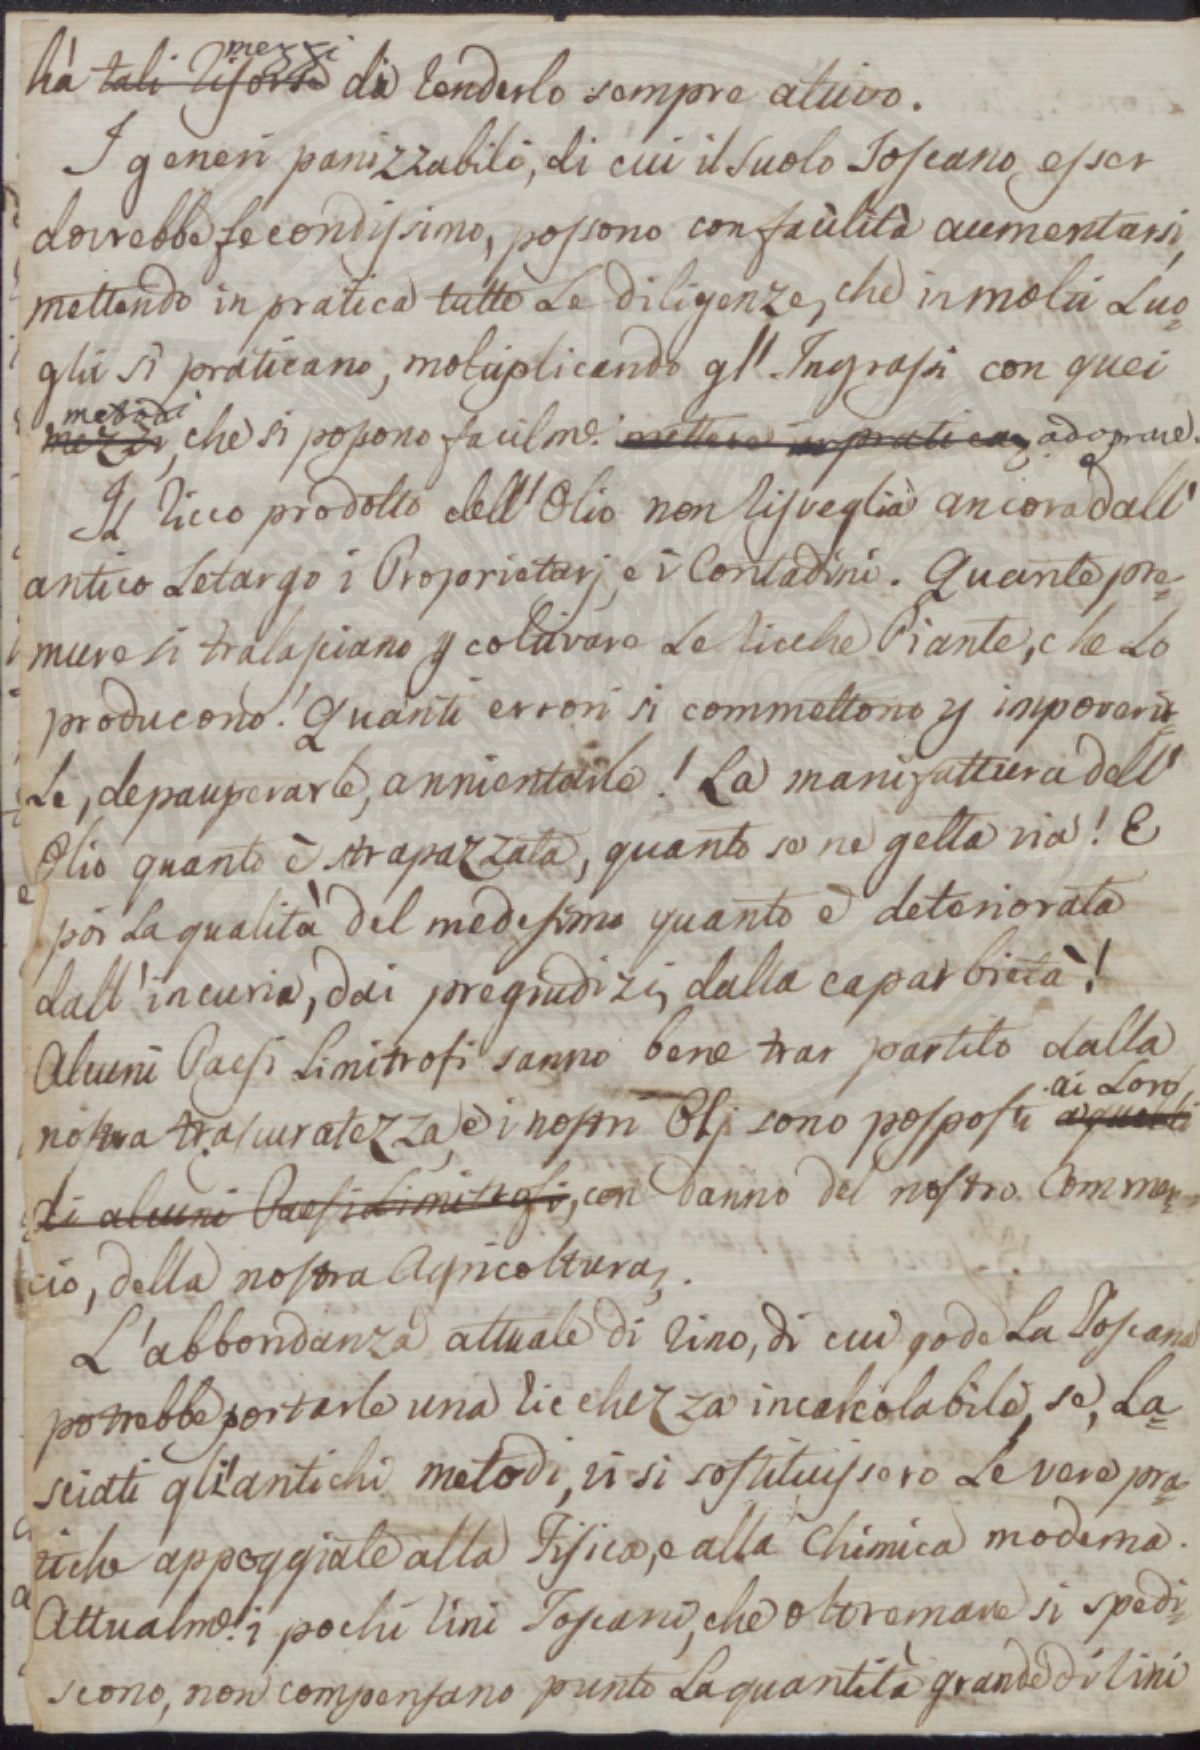 hà tali risorse mezzi di renderlo sempre attivo.
I generi panizzabili, di cui il Suolo Toscano esser
dovrebbe fecondissimo, possono con facilità aumentarsi,
mettendo in pratica tutte Le diligenze, che in molti Luo=
ghi si praticano, moltiplicando gl' Ingrassi con quei
mezzi metodi, che si possono facilme. mettere in pratica, adoprare.
Il ricco prodotto dell' Olio non risveglia ancora dall'
antico Letargo i Proprietarj, e i Contadini. Quante pre=
mure si tralasciano p coltivare Le ricche Piante, che Lo
producono! Quanti errori si commettono p impoverir=
Le, depauperarle, annientarle! La manifattura dell'
Olio quanto è strapazzata, quanto se ne getta via! E
poi La qualità del medesimo quanto è deteriorata
dall' incuria, dai pregiudizi, dalla caparbietà!
Alcuni Paesi Limitrofi sanno bene trar partito dalla
nostra trascuratezza, e i nostri Olj sono posposti a quelli ai Loro
di alcuni Paesi Limitrofi, con danno del nostro Commer=
cio, della nostra Agricoltura.
L' abbondanza attuale di vino, di cui gode La Toscana
potrebbe portarle una ricchezza incalcolabile, se, La=
sciati gli antichi metodi, vi si sostituissero Le vere pra=
tiche appoggiate alla Fisica, e alla Chimica moderna.
Attualme. i pochi vini Toscani, che oltremare si spedi=
scono, non compensano punto La quantità grande di vini